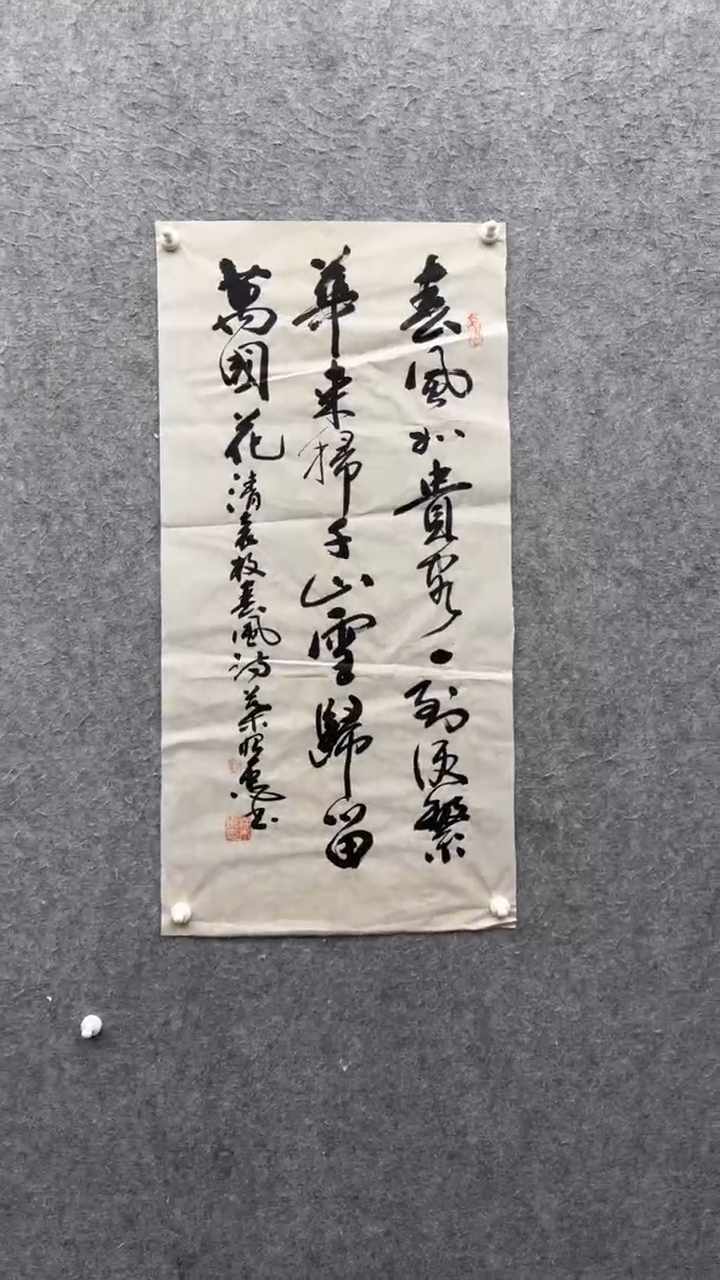 春風如貴客一到便繁
華來掃千山雪歸留
萬國花清袁枚春風詩葉昭惠書